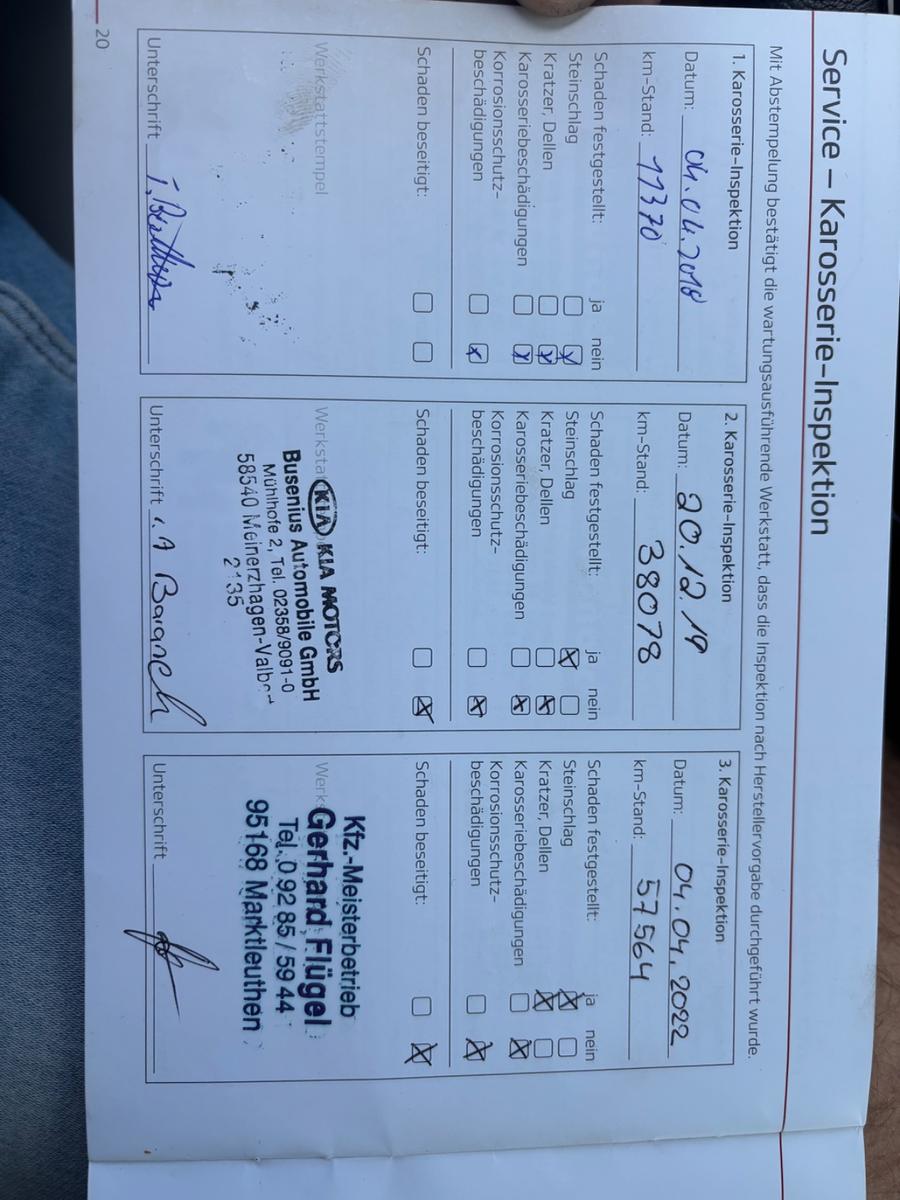 Service – Karosserie-Inspektion
Mit Abstempelung bestätigt die wartungsausführende Werkstatt, dass die Inspektion nach Herstellervorgabe durchgeführt wurde.
1. Karosserie-Inspektion
Datum: 04.04.2018
km-Stand: 11370
Schaden festgestellt: ja nein
Steinschlag
Kratzer, Dellen
Karosseriebeschädigungen
Korrosionsschutz-
beschädigungen
Schaden beseitigt:
Werkstattstempel
Unterschrift
2. Karosserie-Inspektion
Datum: 20.12.19
km-Stand: 38078
Schaden festgestellt: ja nein
Steinschlag
Kratzer, Dellen
Karosseriebeschädigungen
Korrosionsschutz-
beschädigungen
Schaden beseitigt:
KIA KIA MOTORS
Busenius Automobile GmbH
Mühlhofe 2, Tel. 02358/9091-0
58540 Meinerzhagen-Valbert
2135
Unterschrift i.A
3. Karosserie-Inspektion
Datum: 04.04.2022
km-Stand: 57564
Schaden festgestellt: ja nein
Steinschlag
Kratzer, Dellen
Karosseriebeschädigungen
Korrosionsschutz-
beschädigungen
Schaden beseitigt:
Kfz.-Meisterbetrieb
Gerhard Flügel
Tel. 0 92 85 / 59 44
95168 Marktleuthen
Unterschrift
20